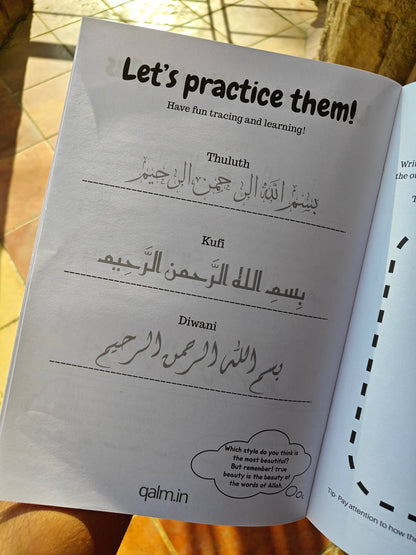 Let's practice them!
Have fun tracing and learning!
Thuluth
بسم الله الرحمن الرحيم
Kufi
بِسمِ الله الرَّحمن الرَّحِيم
Diwani
بسم الله الرحمن الرحيم
Which style do you think is
the most beautiful?
But remember! true
beauty is the beauty of
the words of Allah.
qalm.in
Writ
the ou
T
Tip: Pay attention to how the